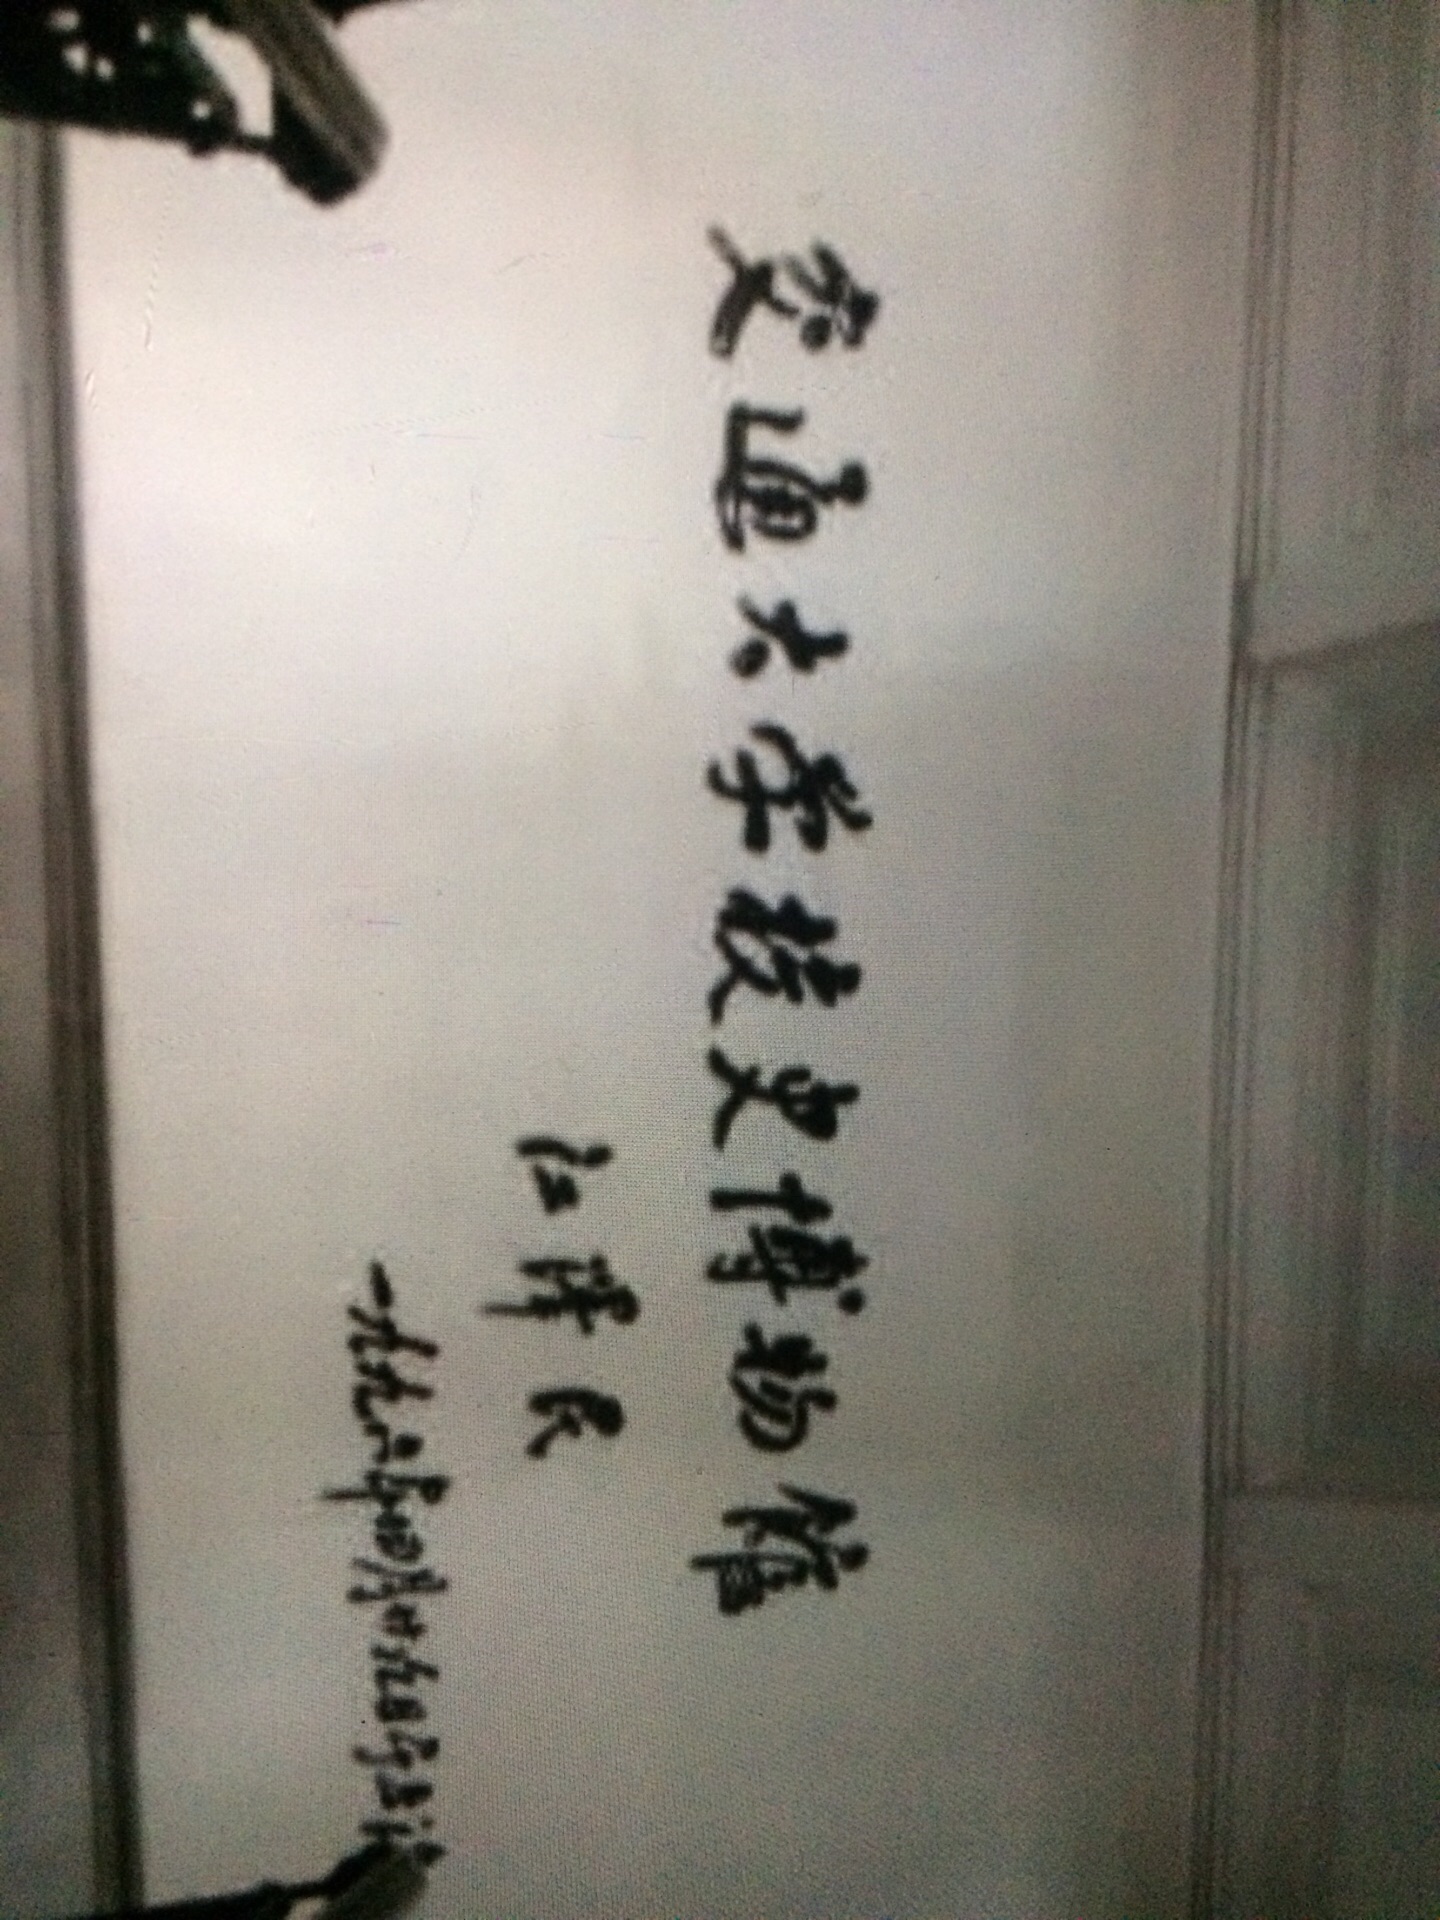 交通大学校史博物馆
江泽民
一九九六年四月廿九日